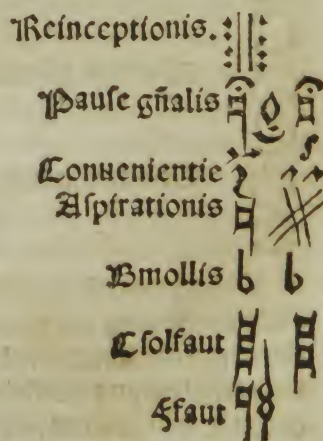 Reinceptionis.
Pauſe gñalis
Conuenientie
Aſpirationis
Bmollis
Cſolfaut
Ffaut